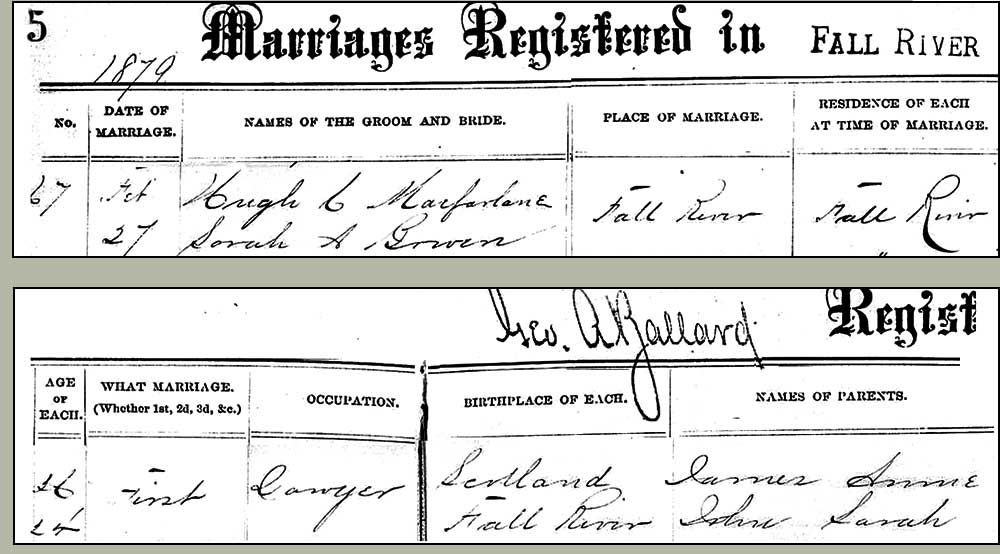 5 Marriages Registered in FALL RIVER
1879
No. DATE OF MARRIAGE. NAMES OF THE GROOM AND BRIDE. PLACE OF MARRIAGE. RESIDENCE OF EACH AT TIME OF MARRIAGE.
67 Feb Hugh C Macfarlane Fall River Fall River
27 Sarah A Bowen "
Geo. A Ballard Regist
AGE OF EACH. WHAT MARRIAGE. (Whether 1st, 2d, 3d, &c.) OCCUPATION. BIRTHPLACE OF EACH. NAMES OF PARENTS.
26 First Lawyer Scotland James Annie
24 Fall River John Sarah